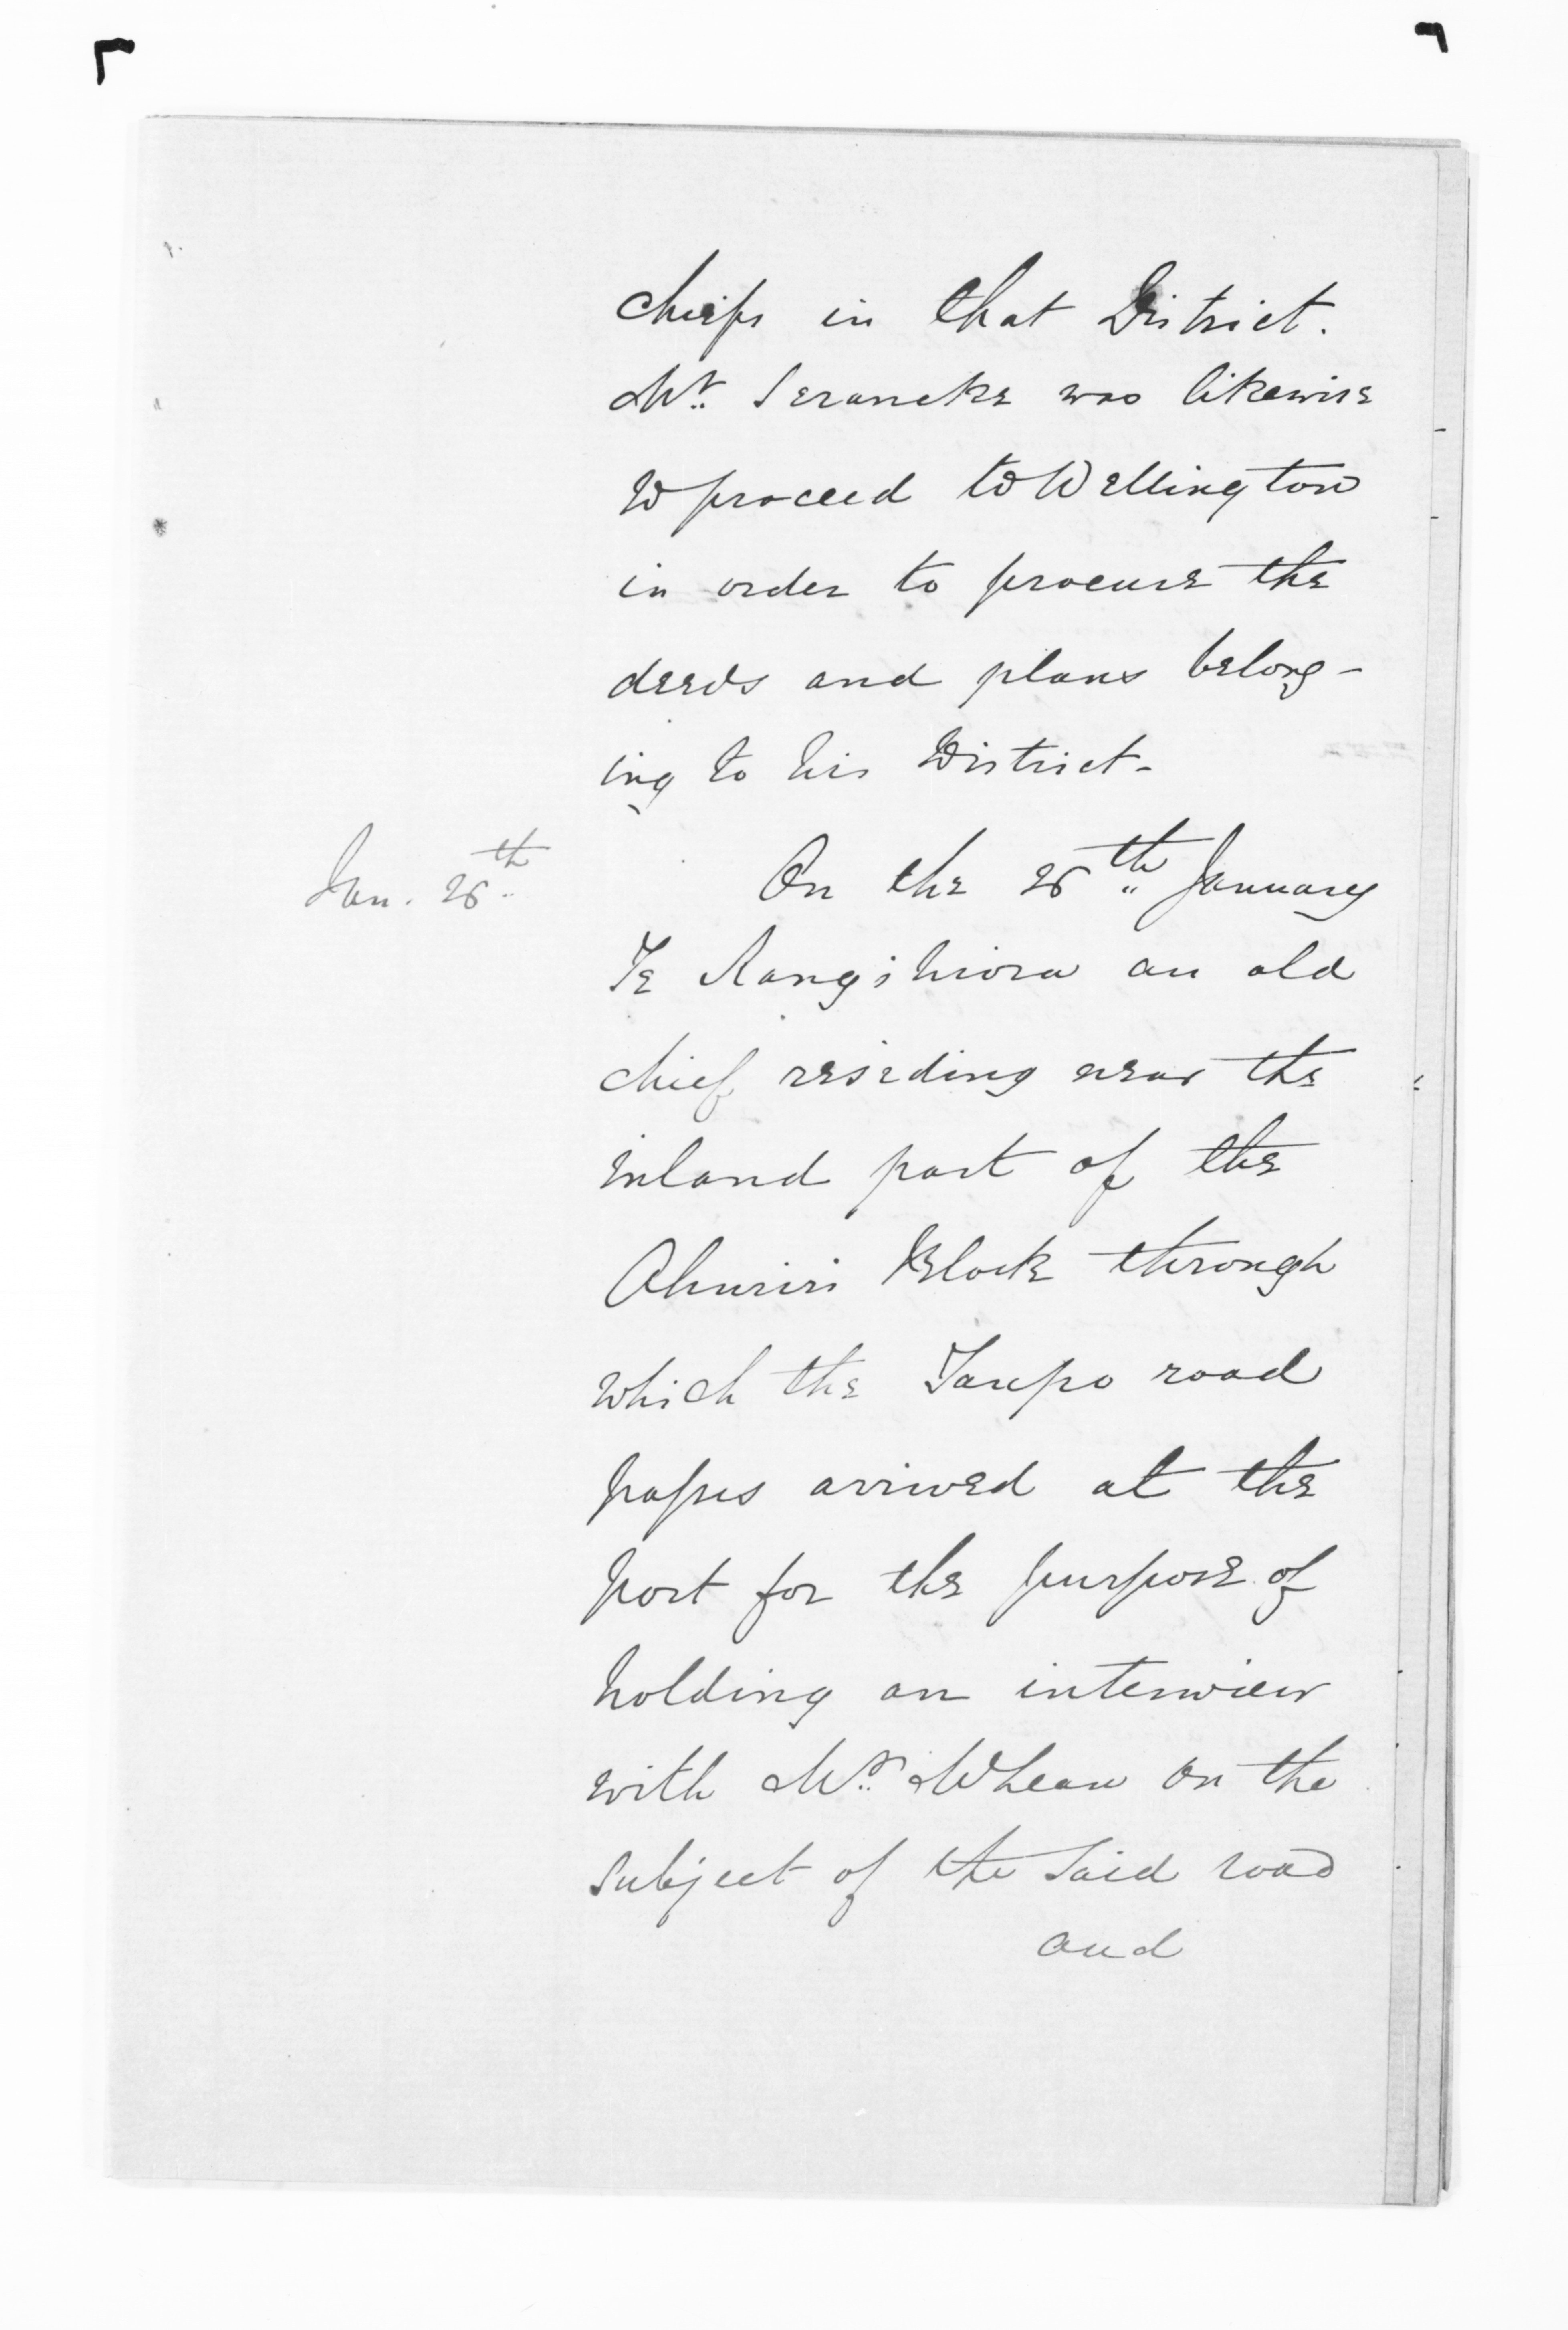 chiefs in that District.
Mr. Searancke was likewise
to proceed to Wellington
in order to procure the
deeds and plans belong-
ing to his District-
Jan. 26th
On the 26th January
Te Rangihiroa an old
chief residing near the
inland part of the
Ahuriri Block through
which the Taupo road
passes arrived at the
port for the purpose of
holding an interview
with Mr. McLean on the
subject of the said road
and